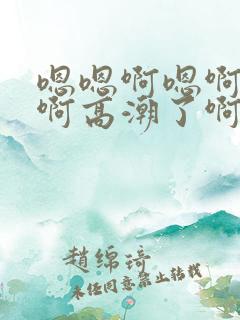 嗯嗯啊嗯啊
啊高潮了啊
趙绵琦
未经同意禁止转载